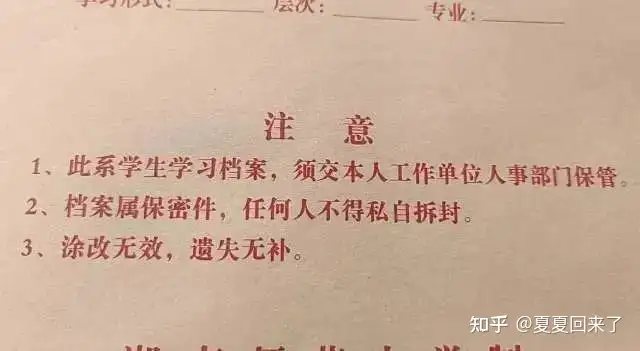 学习形式: 层次: 专业:
注 意
1、此系学生学习档案，须交本人工作单位人事部门保管。
2、档案属保密件，任何人不得私自拆封。
3、涂改无效，遗失无补。
知乎 @夏夏回来了